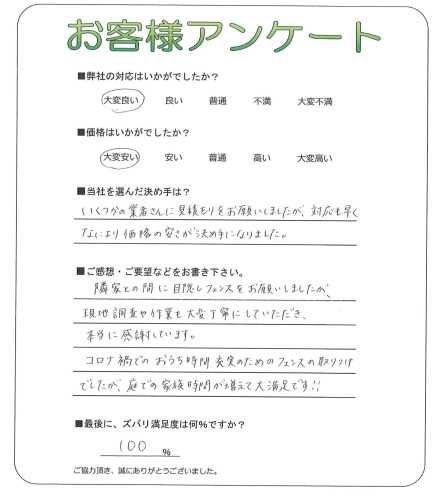 お客様アンケート
■弊社の対応はいかがでしたか？
大変良い 良い 普通 不満 大変不満
■価格はいかがでしたか？
大変安い 安い 普通 高い 大変高い
■当社を選んだ決め手は？
いくつかの業者さんに見積もりをお願いしましたが、対応も早く
なにより価格の安さが決め手になりました。
■ご感想・ご要望などをお書き下さい。
隣家との間に目隠しフェンスをお願いしましたが、
現地調査や作業も大変丁寧にしていただき、
本当に感謝しています。
コロナ禍でのおうち時間充実のためのフェンスの取りつけ
でしたが、庭での家族時間が増えて大満足です!!
■最後に、ズバリ満足度は何%ですか？
100 %
ご協力頂き、誠にありがとうございました。